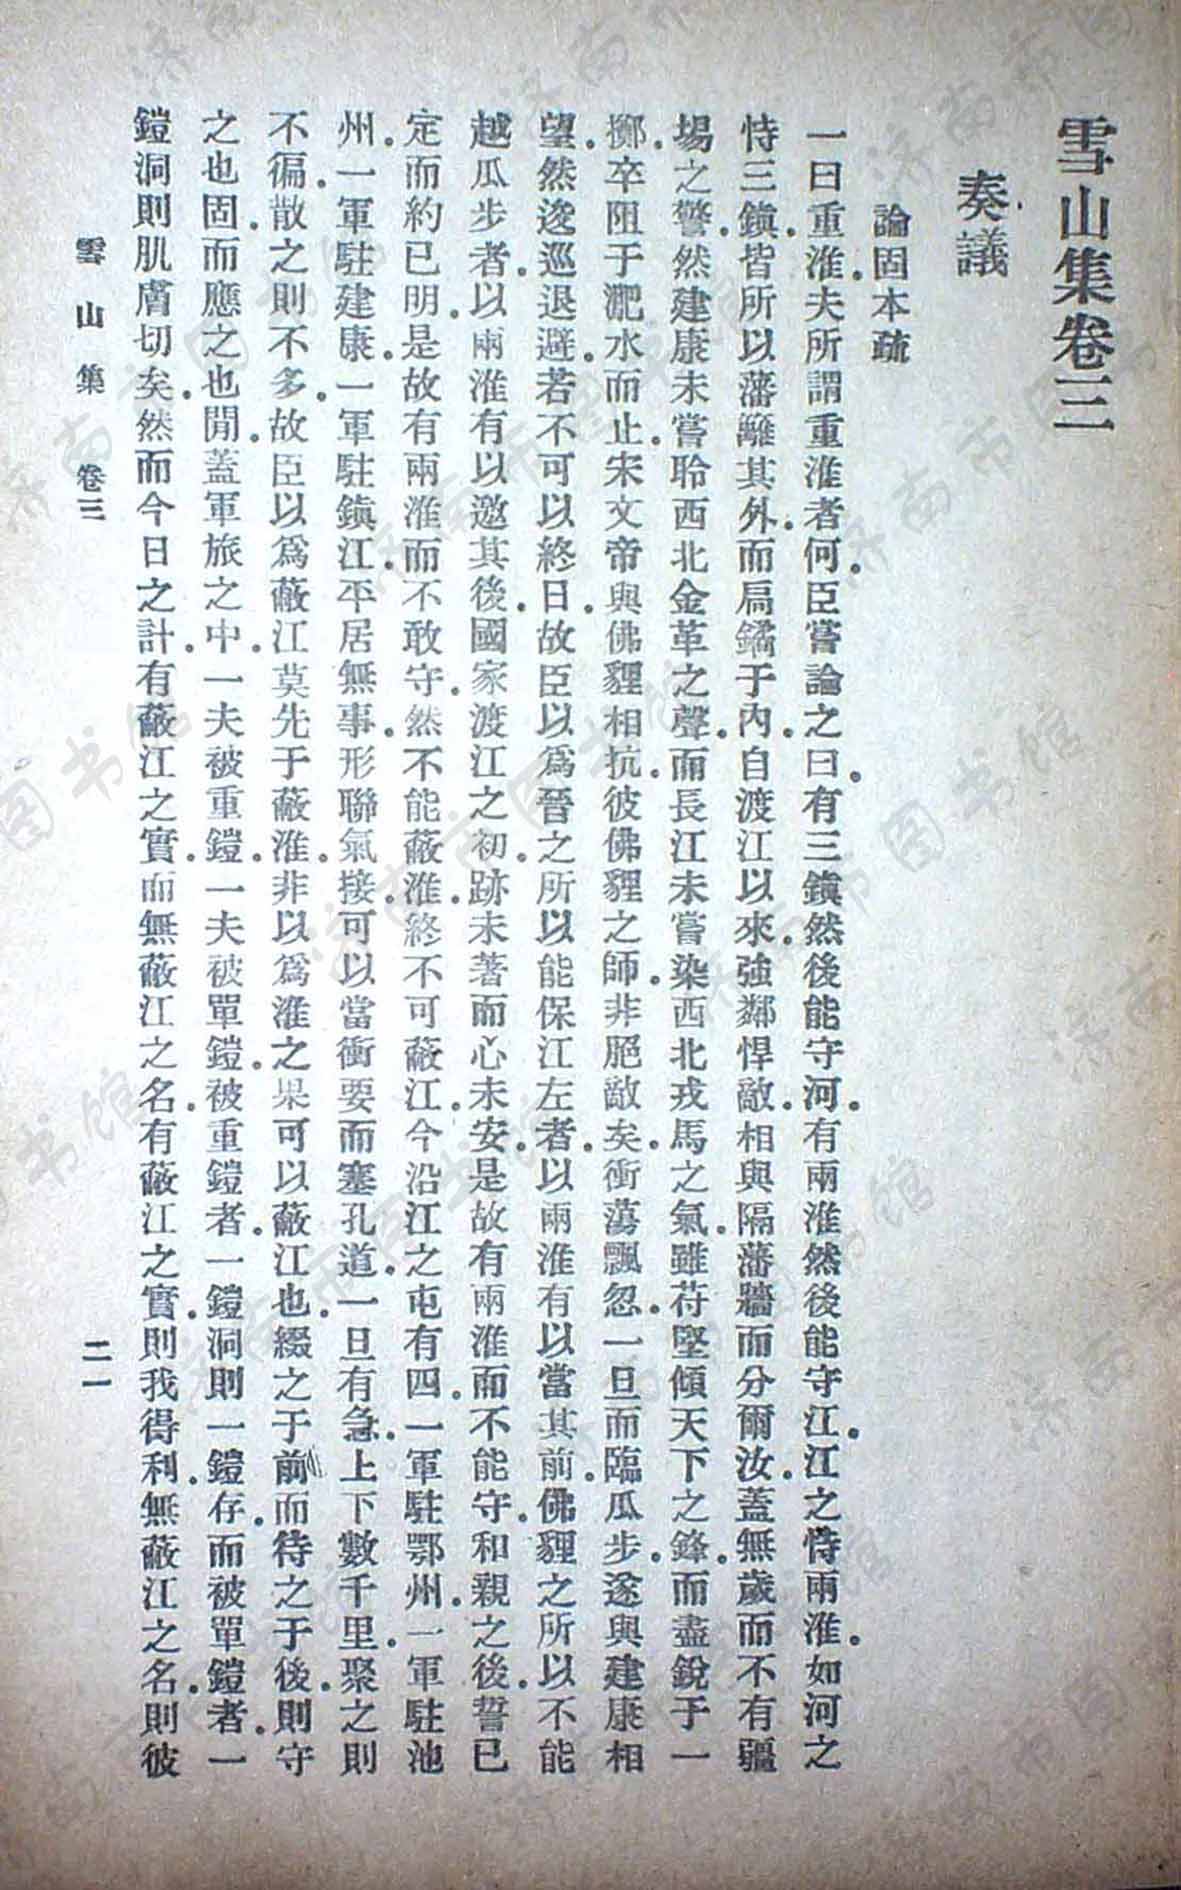 雪山集卷三
奏議
論固本疏
一曰重淮。夫所謂重淮者何。臣嘗論之曰。有三鎭然後能守河。有兩淮然後能守江。江之恃兩淮。如河之
恃三鎭。皆所以藩籬其外。而扃鐍于內。自渡江以來。強鄰悍敵。相與隔藩牆而分爾汝。蓋無歲而不有疆
埸之警。然建康未嘗聆西北金革之聲。而長江未嘗染西北戎馬之氣。雖苻堅傾天下之鋒。而盡銳于一
擲。卒阻于淝水而止。宋文帝與佛貍相抗。彼佛貍之師。非脆敵矣。衝蕩飄忽。一旦而臨瓜步。遂與建康相
望。然逡巡退避。若不可以終日。故臣以爲晉之所以能保江左者。以兩淮有以當其前。佛貍之所以不能
越瓜步者。以兩淮有以邀其後。國家渡江之初。跡未著而心未安。是故有兩淮而不能守。和親之後。誓已
定而約已明。是故有兩淮而不敢守。然不能蔽淮。終不可蔽江。今沿江之屯有四。一軍駐鄂州。一軍駐池
州。一軍駐建康。一軍駐鎭江。平居無事。形聯氣接。可以當衝要而塞孔道。一旦有急。上下數千里。聚之則
不徧。散之則不多。故臣以爲蔽江莫先于蔽淮。非以爲淮之果可以蔽江也。綴之于前。而待之于後。則守
之也固。而應之也閒。蓋軍旅之中。一夫被重鎧。一夫被單鎧。被重鎧者。一鎧洞則一鎧存。而被單鎧者。一
鎧洞則肌膚切矣。然而今日之計。有蔽江之實。而無蔽江之名。有蔽江之實。則我得利。無蔽江之名。則彼
雪山集 卷三 二一